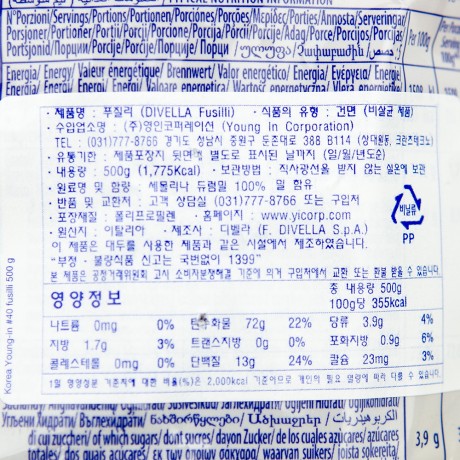 N°Porzioni/Servings/Portions/Portionen/Porciones/Porções/Μερίδες/Porties/Annosta/Serveringar
Energia/ Energy/ Valeur énergétique/ Brennwert/ Valor energético/ Energia/ Ενέργεια/ Energie
· 제품명 : 푸질리 (DIVELLA Fusilli) · 식품의 유형 : 건면 (비살균 제품)
· 수입업소명 : (주)영인코퍼레이션 (Young In Corporation)
TEL : (031)777-8766 경기도 성남시 중원구 둔촌대로 388 B114 (상대원동, 크란츠테크노)
· 유통기한 : 제품포장지 뒷면에 별도로 표시된 날까지 (일/월/년도순)
· 내용량 : 500g (1,775Kcal) · 보관방법 : 직사광선을 받지 않는 실온에 보관
· 원료명 및 함량 : 세몰리나 듀럼밀 100% 밀 함유
· 반품 및 교환처 : 고객 상담실 (031)777-8766 또는 구입처
· 포장재질 : 폴리프로필렌 · 홈페이지 : www.yicorp.com
· 원산지 : 이탈리아 · 제조사 : 디벨라 (F. DIVELLA S.p.A.)
이 제품은 대두를 사용한 제품과 같은 시설에서 제조하였습니다.
"부정 · 불량식품 신고는 국번없이 1399"
본 제품은 공정거래위원회 고시 소비자분쟁해결 기준에 의거 구입처에서 교환 또는 환불 받을 수 있습니다.
비닐류
PP
영양정보
총 내용량 500g
100g당 355kcal
나트륨 0mg 0% 탄수화물 72g 22% 당류 3.9g 4%
지방 1.7g 3% 트랜스지방 0g 0% 포화지방 0.9g 6%
콜레스테롤 0mg 0% 단백질 13g 24% 칼슘 23mg 3%
1일 영양성분 기준치에 대한 비율(%)은 2,000kcal 기준이므로 개인의 필요 열량에 따라 다를 수 있습니다.
Korea Young-in #40 fusilli 500 g
di cui zuccheri/ of which sugars/ dont sucres/ davon Zucker/ de los cuales azúcares/ açúcares
3,9 g